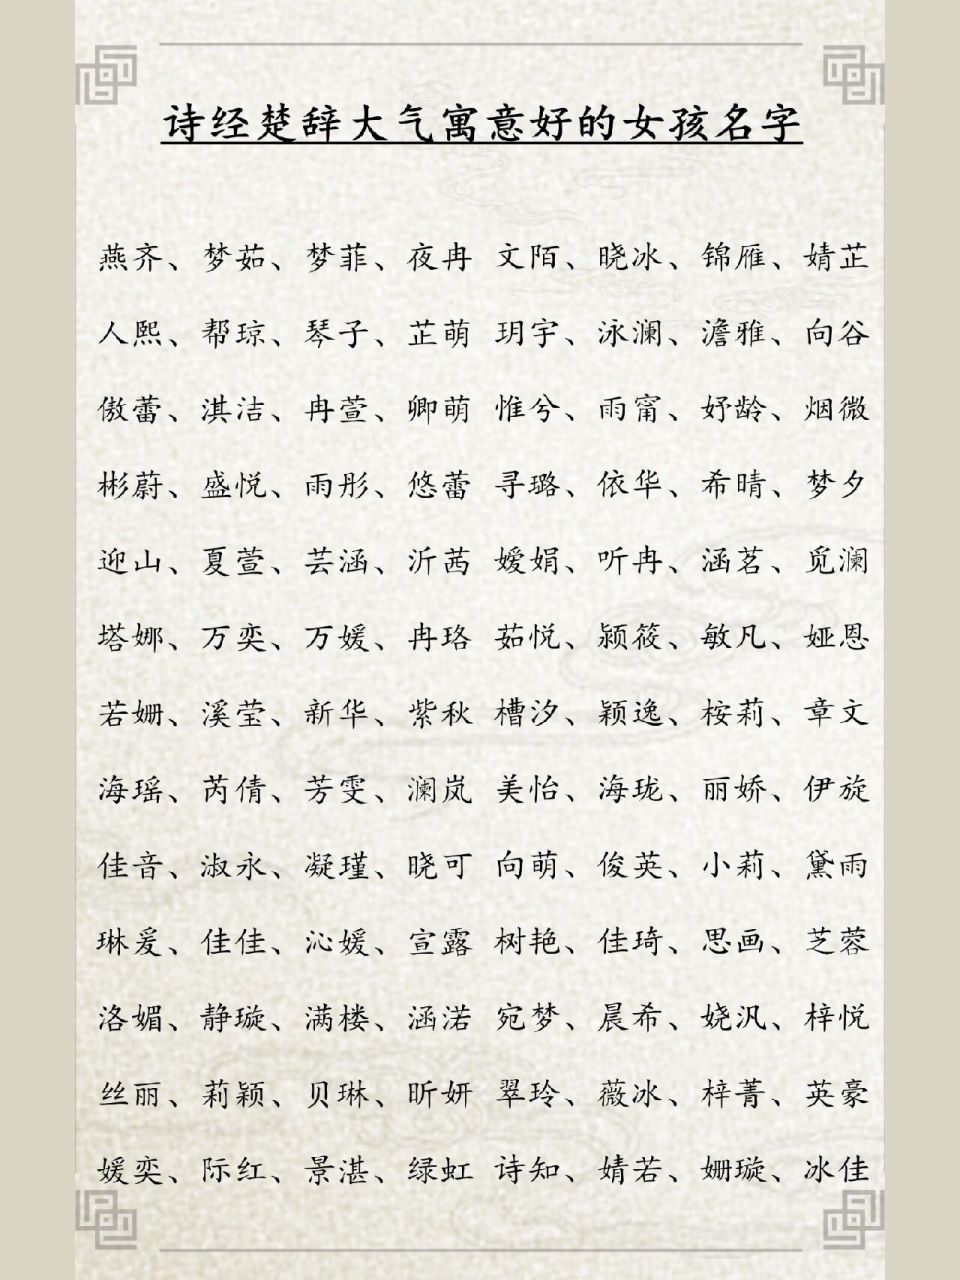 诗经楚辞大气寓意好的女孩名字
燕齐、梦茹、梦菲、夜冉 文陌、晓冰、锦雁、婧芷
人熙、帮琼、琴子、芷萌 玥宇、泳澜、澹雅、向谷
傲蕾、淇洁、冉萱、卿萌 惟兮、雨甯、妤龄、烟微
彬蔚、盛悦、雨彤、悠蕾 寻璐、依华、希晴、梦夕
迎山、夏萱、芸涵、沂茜 嫒娟、听冉、涵茗、觅澜
塔娜、万奕、万媛、冉珞 茹悦、颍筱、敏凡、娅恩
若姗、溪莹、新华、紫秋 槽汐、颖逸、桉莉、章文
海瑶、芮倩、芳雯、澜岚 美怡、海珑、丽娇、伊旋
佳音、淑永、凝瑾、晓可 向萌、俊英、小莉、黛雨
琳爰、佳佳、沁媛、宣露 树艳、佳琦、思画、芝蓉
洛媚、静璇、满楼、涵渃 宛梦、晨希、娆汎、梓悦
丝丽、莉颖、贝琳、昕妍 翠玲、薇冰、梓菁、英豪
媛奕、际红、景湛、绿虹 诗知、婧若、姗璇、冰佳